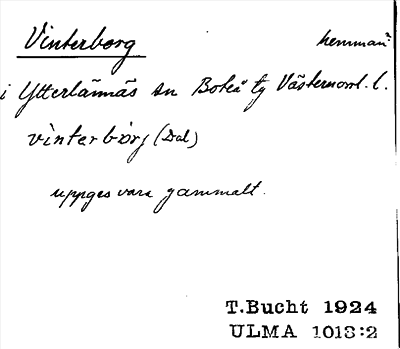 Vinterborg hemman?
i Ytterlännäs sn Boteå tg Västernorrl. l.
vìnterbòrj (Dal)
uppges vara gammalt.
T.Bucht 1924
ULMA 1013:2